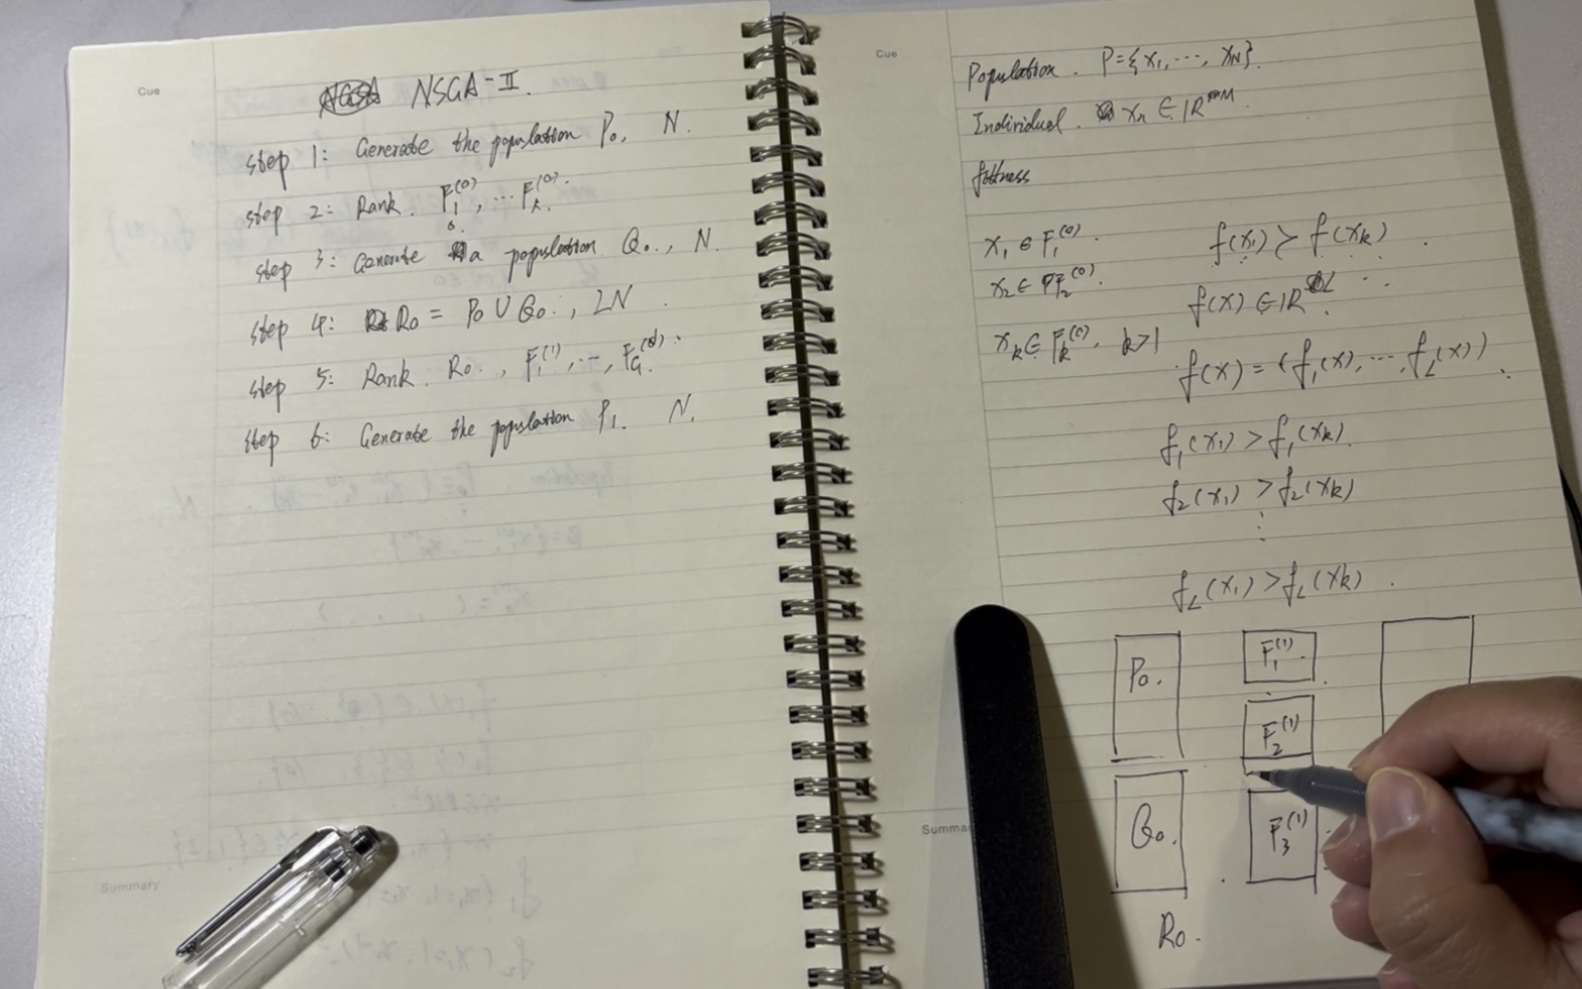 Cue
NSGA-II.
Step 1: Generate the population P₀, N.
Step 2: Rank. F₁⁽⁰⁾, ⋯ Fₖ⁽⁰⁾.
Step 3: Generate a population Q₀., N.
Step 4: R₀ = P₀ ∪ Q₀., 2N.
Step 5: Rank. R₀., F₁⁽¹⁾, ⋯,
Step 6: Generate the population P₁. N.
Summary
Cue
Population. P={x₁, ⋯, x_N}.
Individual.
fitness
x₁ ∈ F₁⁽⁰⁾. f(x₁) > f(xₖ).
x₂ ∈ F₂⁽⁰⁾. f(x) ∈ ℝᴸ.
xₖ ∈ Fₖ⁽⁰⁾. k>1
f(x) = (f₁(x), ⋯, f_L(x)).
f₁(x₁) > f₁(xₖ).
f₂(x₁) > f₂(xₖ)
⋮
f_L(x₁) > f_L(xₖ).
P₀. F₁⁽¹⁾.
F₂⁽¹⁾
Q₀. F₃⁽¹⁾
R₀.